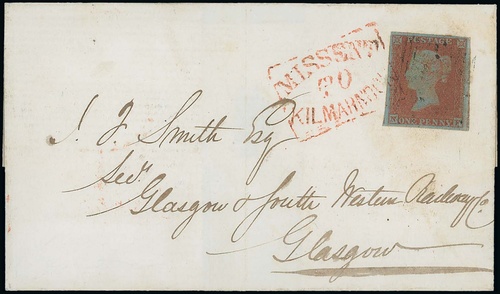 MISSSENT
TO
KILMARNOCK
POSTAGE
ONE PENNY
J. F. Smith Esq
Secy
Glasgow & South Western Railway Co
Glasgow